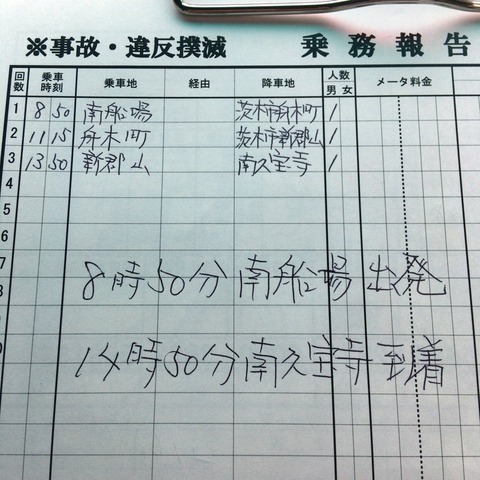 ※事故・違反撲滅 乗務報告
回数 乗車時刻 乗車地 経由 降車地 人数 男 女 メータ料金
1 8 50 南船場 茨木市舟木町 1
2 11 15 舟木町 茨木市新郡山 1
3 13 50 新郡山 南久宝寺 1
4
5
6
7
8時50分 南船場 出発
8
14時50分 南久宝寺 到着